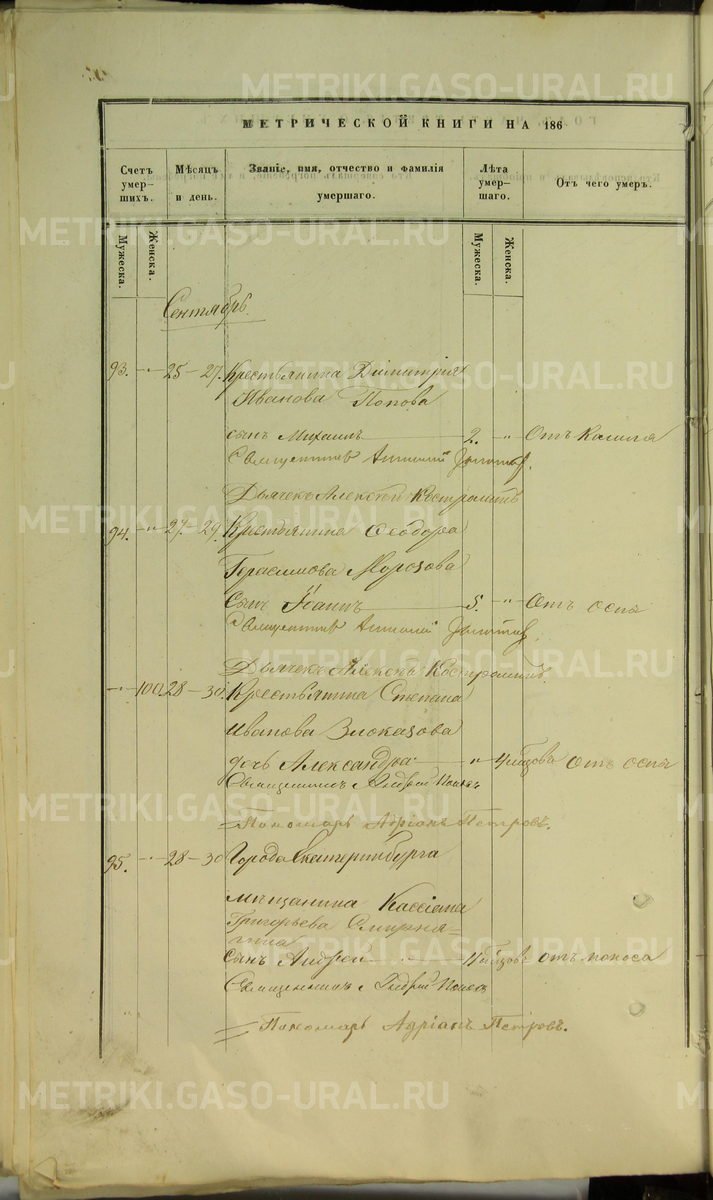 МЕТРИЧЕСКОЙ КНИГИ НА 186
Счетъ умер- шихъ.
Мѣсяцъ и день.
Званіе, имя, отчество и фамилія умершаго.
Лѣта умер- шаго.
Отъ чего умеръ.
Мужеска.
Женска.
Мужеска.
Женска.
Сентябрь
93. -"- 25-27. Крестьянина Димитрія
Иванова Попова
сынъ Михаилъ 2. " Отъ кашля
Священникъ
Дьячекъ Алексѣй Костроминъ
94. -"- 27-29. Крестьянина Ѳеодора
Герасимова Морозова
Сынъ Іоаннъ 5. " Отъ оспы
Священникъ
Дьячекъ Алексѣй Костроминъ.
-"- 100. 28-30. Крестьянина Степана
Иванова Злоказова
дочь Александра " 4 мѣсяцова Отъ оспы
Священникъ Андрей
Пономарь Адріанъ Петровъ.
95. -"- 28-30 Города Екатеринбурга
мѣщанина Кассіана
Григорьева Смирня-
гина
сынъ Андрей отъ поноса
Священникъ Андрей
Пономарь Адріанъ Петровъ.
METRIKI.GASO-URAL.RU